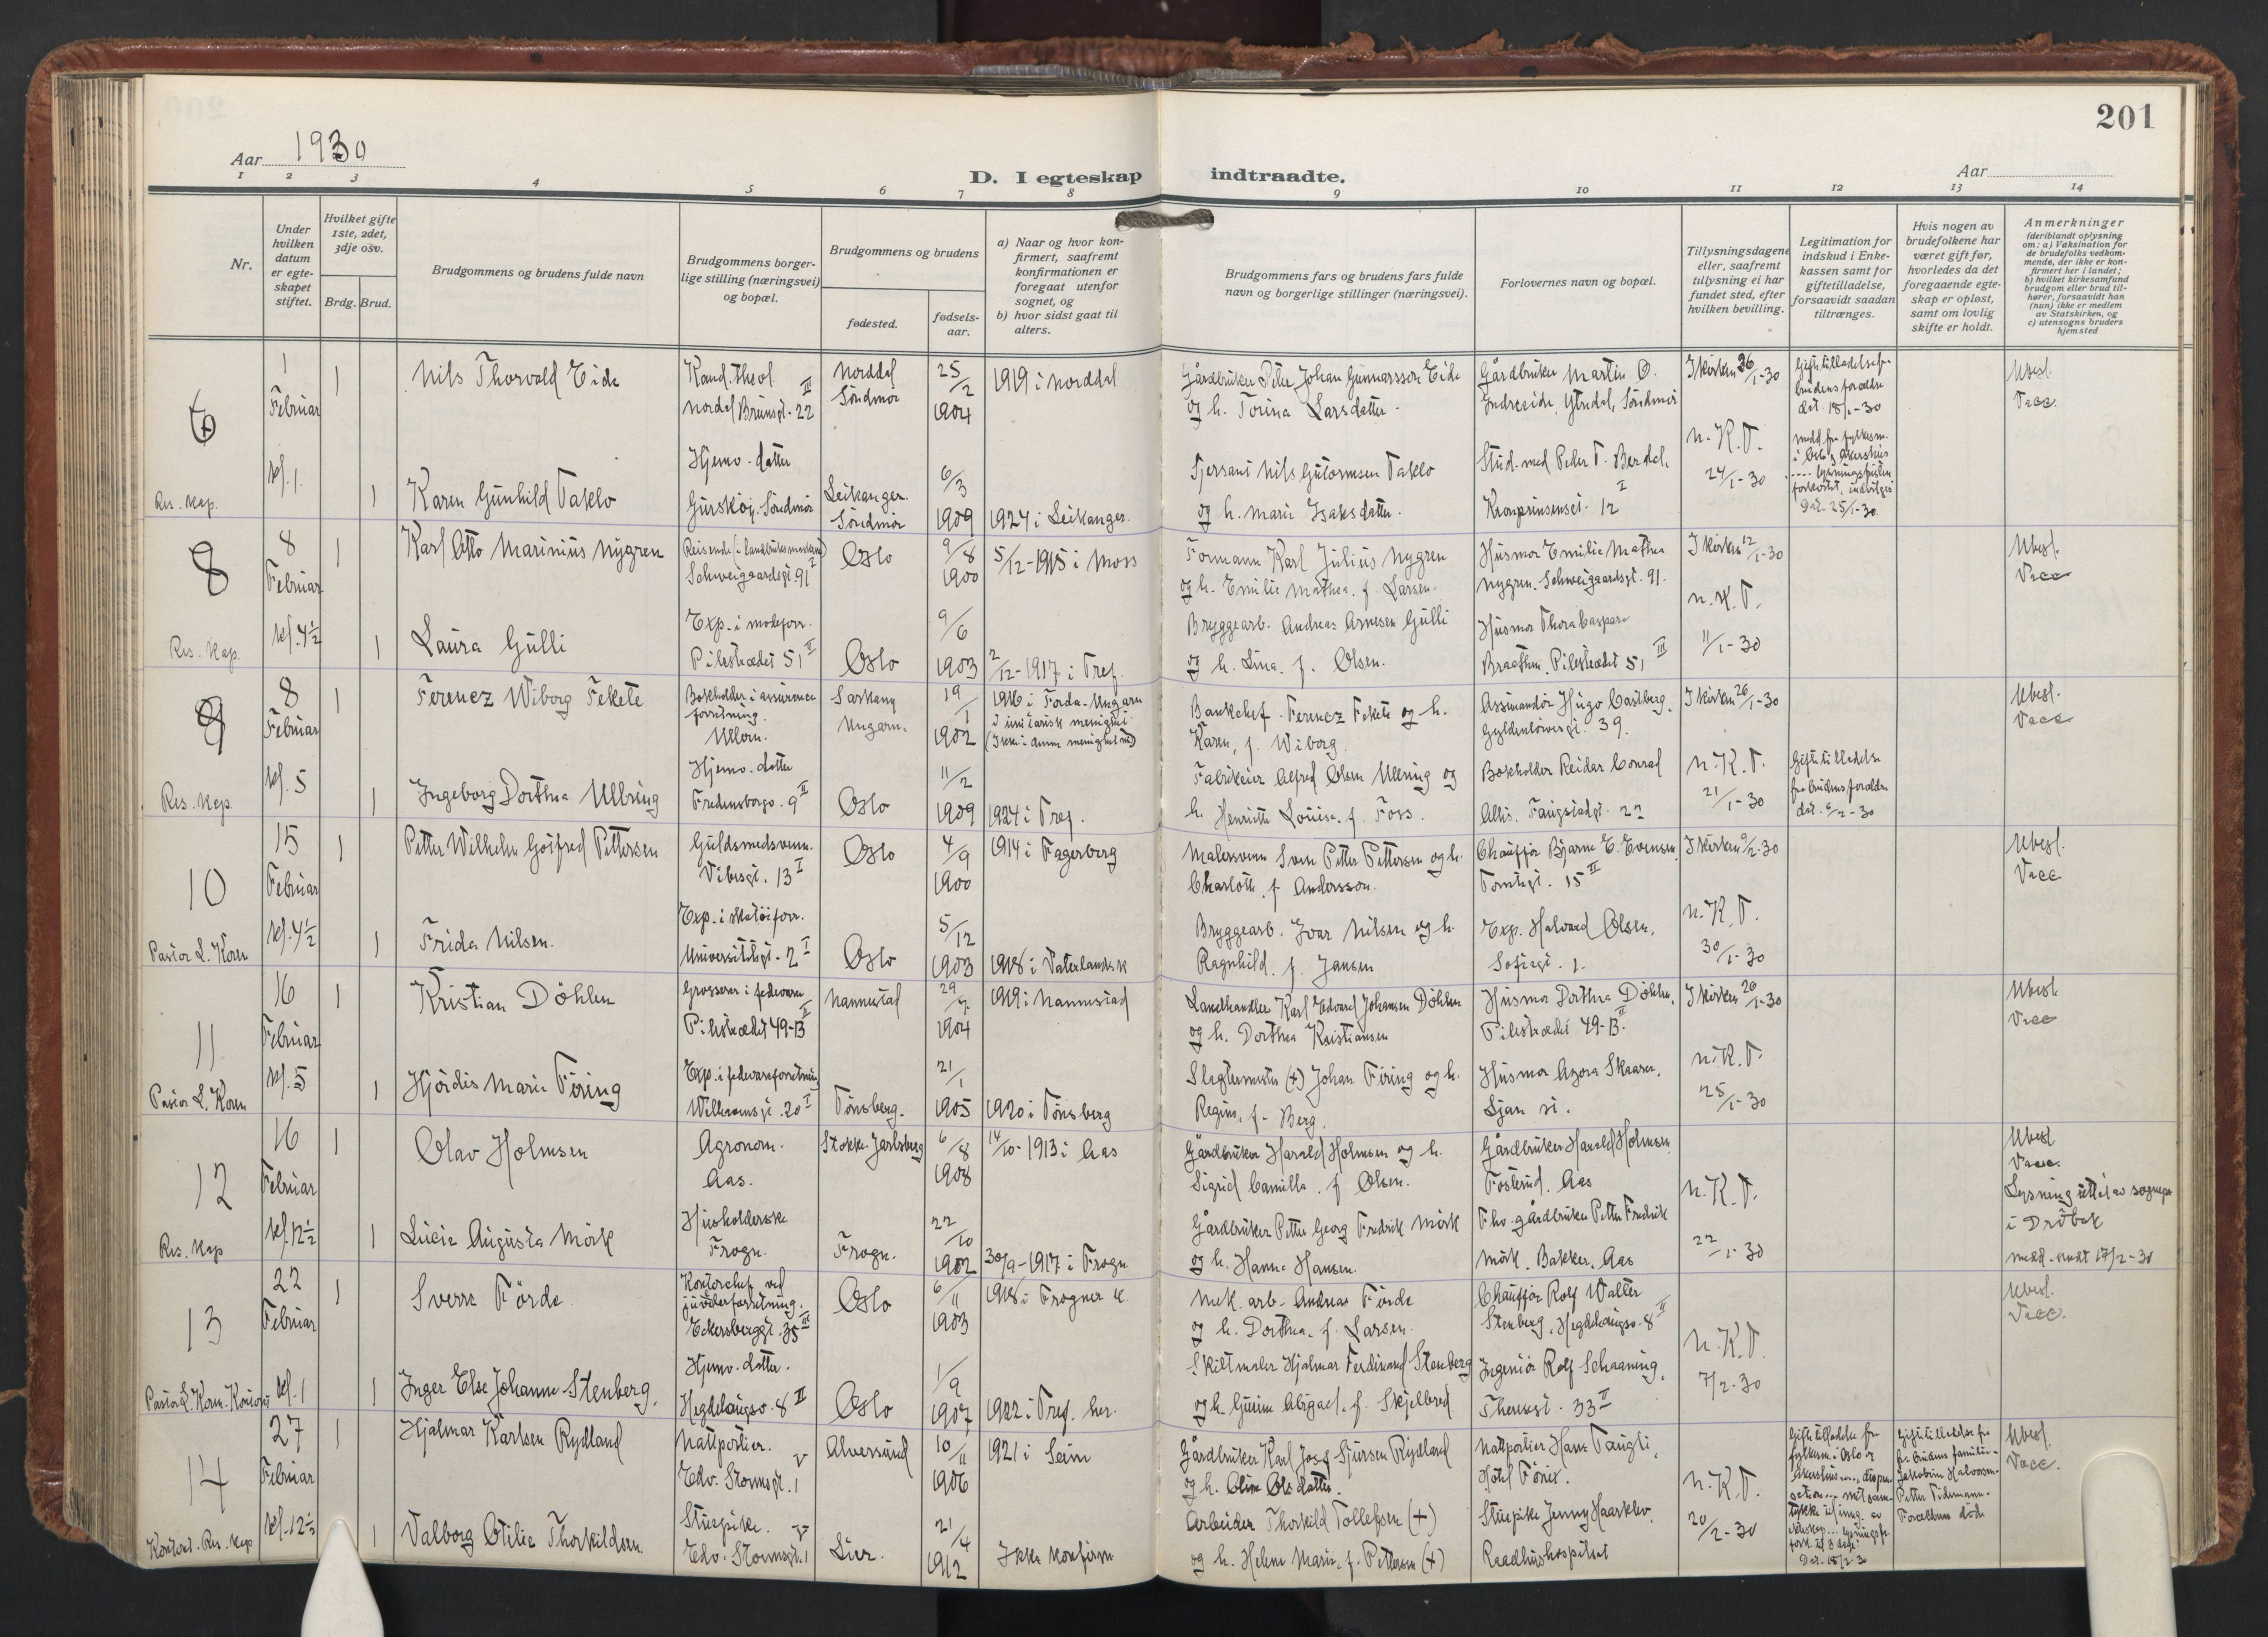 201
Aar 1930
Aar
D. I egteskap indtraadte.
1 2 3 4 5 6 7 8 9 10 11 12 13 14
Nr.
Under hvilken datum er egte-skapet stiftet.
Hvilket gifte 1ste, 2det, 3dje osv.
Brdg. Brud.
Brudgommens og brudens fulde navn
Brudgommens borger-lige stilling (næringsvei) og bopæl.
Brudgommens og brudens
fødested.
fødsels-aar.
a) Naar og hvor kon-firmert, saafremt konfirmationen er foregaat utenfor sognet, og
b) hvor sidst gaat til alters.
Brudgommens fars og brudens fars fulde navn og borgerlige stillinger (næringsvei).
Forlovernes navn og bopæl.
Tillysningsdagene eller, saafremt tillysning ei har fundet sted, efter hvilken bevilling.
Legitimation for indskud i Enke-kassen samt for giftetilladelse, forsaavidt saadan tiltrænges.
Hvis nogen av brudefolkene har været gift før, hvorledes da det foregaaende egte-skap er opløst, samt om lovlig skifte er holdt.
Anmerkninger
(deriblandt oplysning om: a) Vaksination for de brudefolks vedkom-mende, der ikke er kon-firmert her i landet; b) hvilket kirkesamfund brudgom eller brud til-hører, forsaavidt han (hun) ikke er medlem av Statskirken, og c) utensogns bruders hjemsted
1 Februar kl. 1.
Res. Kap.
1 Nils Thorvald Eide
Kand. theol. Nordal Brunsgt. 22 III
Norddal Söndmör
25/2 1904
1919 i Norddal
Gårdbruker Peter Johan Gunnarsson Eide
og h. Torina Larsdatter.
Gårdbruker Martin O.
Indreeide, Ytredal, Söndmör
I kirken 26/1-30
Giftetilladelse fra brudens forældre dat. 18/1-30
Ubesl.
Vacc.
1 Karen Gunhild Taklo
Hjemv. datter
Gurskøy. Söndmör
Leikanger. Söndmör
6/3 1909
1924 i Leikanger.
Sjersant Nils Gutormsen Taklo
og h. Marie Isaksdatter.
Stud. med Peder T. Berdal.
Kronprinsensgt. 12 I
N.K.T.
24/1-30
Dat. 25/1-30.
8
8 Februar kl. 4½
Res. Kap.
1 Karl Otto Marinius Nygren
Reisende (i landbruksmaskiner)
Schweigaardsgt. 91 I
Oslo
9/8 1900
5/12-1915 i Moss
Formann Karl Julius Nygren
og h. Emilie Mathea. f. Larsen.
Husmor Emilie Mathea
Nygren. Schweigaardsgt. 91.
I kirken 12/1-30
Ubesl.
Vacc
1 Laura Gulli
Exp. i modeforr.
Pilestrædet 51 II
Oslo
9/6 1903
2/12-1917 i Tref.
Bryggearb. Andreas Arnesen Gulli
og h. Lina. f. Olsen.
Husmor Thora Caspara
Braathen. Pilestrædet 51 III
N.K.T.
11/1-30
9
8 Februar kl. 5
Res. Kap.
1 Ferencz Wiborg Fekete
Bokholder i assurance
forretning.
Ullern.
Sarkany Ungarn.
19/1 1902
1916 i Forda-Ungarn
i unitarisk menighet
Bankchef. Ferencz Fekete og h.
Karen, f. Wiborg.
Assurandör Hugo Castberg.
Gyldenlövesgt. 39.
I kirken 26/1-30
Ubesl.
Vacc
1 Ingeborg Dorthea Ullring
Hjemv. datter
Fredensborgv. 9 II
Oslo
11/2 1909
1924 i Tref.
Fabrikeier Alfred Olsen Ullring og
h. Henriette Louise. f. Foss.
Bokholder Reidar Conrad
N.K.T.
21/1-30
Giftetilladelse
fra brudens forældre
dat. 6/2-30
10
15 Februar kl. 4½
Pastor L. Koren
1 Petter Wilhelm Gotfred Pettersen
Guldsmedsvenn.
Vibesgt. 13 I
Oslo
4/9 1900
1914 i Fagerborg
Malersvenn Sven Petter Pettersen og h.
Charlotte. f. Andersson.
Chauffør Bjarne E. Evensen.
Tomtegt. 15 III
I kirken 9/2-30
Ubesl.
Vacc
1 Frida Nilsen.
Exp. i skotöiforr.
Universitetsgt. 2 I
Oslo
5/12 1903
1918 i Vaterlands k
Bryggearb. Ivar Nilsen og h.
Ragnhild. f. Jansen
Exp. Halvard Olsen,
Sofiegt. 1.
N.K.T.
30/1-30
11
16 Februar kl. 5
Pastor L. Koren
1 Kristian Döhlen
Grosserer i fedevarer
Pilestrædet 49-B II
Nannestad
29/7 1904
1919 i Nannestad
Landhandler Karl Edvard Johansen Döhlen
og h. Dorthea Kristiansen
Husmor Dorthea Döhlen,
Pilestrædet 49-B. II
I kirken 26/1-30
Ubesl
Vacc
1 Hjördis Marie Föring
Exp. i fedevareforretning
Wilhelmsgt. 20 I
Tönsberg.
21/1 1905
1920 i Tönsberg
Slagtermester (+) Johan Föring og h.
Regine, f. Berg.
Husmor Agora Skaarer,
Ljan st.
N.K.T.
25/1-30
12
16 Februar kl. 12½
Res. Kap
1 Olav Holmsen
Agronom.
Aas.
Stokke. Jarlsberg
6/8 1908
14/10-1913 i Aas
Gårdbruker Harald Holmsen og h.
Sigrid Camilla. f. Olsen.
Gårdbruker Harald Holmsen,
Fosterud. Aas
Ubesl
Vacc.
1 Lucie Augusta Mörk
Husholderske
Frogn.
Frogn.
22/10 1902
30/9-1917 i Frogn
Gårdbruker Petter Georg Fredrik Mörk
og h. Hanna Hansen.
Fhv. gårdbruker Petter Fredrik
Mörk. Bakker. Aas
N.K.T.
22/1-30
Lysning utstet av sognepr
i Dröbak
medd. sendt 17/2-30
13
22 Februar kl. 1
Pastor L. Koren. Kontoret
1 Sverre Förde
Kontorchef ved
juvelerforretning.
Eckersbergsgt. 35 III
Oslo
6/11 1903
1918 i Frogner k.
Mek. arb. Andreas Förde
og h. Dorthea. f. Larsen.
Chauffør Rolf Walter
Stenberg, Hegdehaugsv. 8 II
Ubesl.
Vacc.
1 Inger Else Johanne Stenberg.
Hjemv. datter.
Hegdehaugsv. 8 II
Oslo
1/9 1907
1922 i Tref. her.
Skiltmaler Hjalmar Ferdinand Stenberg
og h. Guine Abigael. f. Skjelbred
Ingeniör Rolf Schaaning,
Theresesgt. 33 II
N.K.T.
7/2-30
14
27 Februar kl. 12½
Kontoret. Res. Kap
1 Hjalmar Karlsen Rydland
Nattportier.
Edv. Stormsgt. 1 V
Alversund
10/11 1906
1921 i Seim
Gårdbruker Karl Josef Sjursen Rydland
og h. Oline Olsdatter.
Nattportier Hans Taugli,
Hotel Fönix.
Giftetilladelse fra
Giftetilladelse fra
Ubesl.
Vacc.
1 Valborg Otilie Thorkildsen.
Stuepike.
Edv. Stormsgt. 1 V
Lier.
21/4 1912
Ikke konfirm.
Arbeider Thorkild Tollefsen (+)
og h. Helene Marie. f. Pettersen (+)
Stuepike Jenny Haarklev,
Raadhushospitset
N.K.T.
20/2-30
Dat. 18/2-30